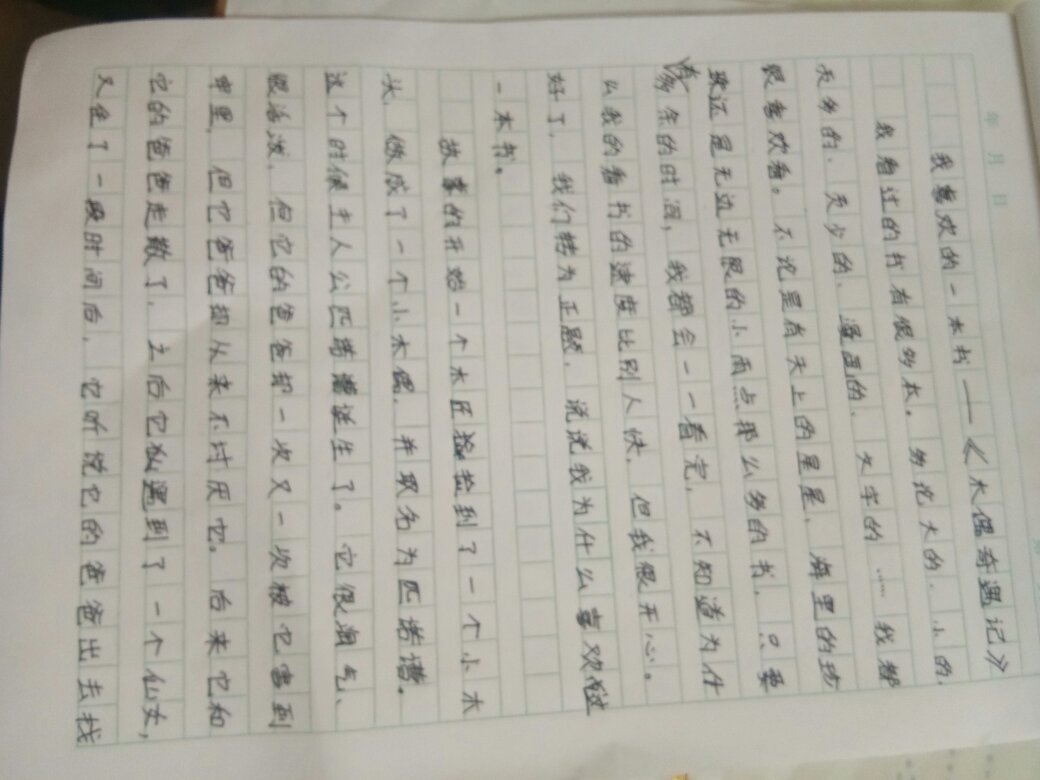 年 月 日
我喜欢的一本书——《木偶奇遇记》
我看过的书有很多本。大的、小的、
多的、少的、漫画的、文字的……我都
很喜欢看。不论是有天上的星星、海里的珍
珠还是无边无限的小雨点那么多的书，只要
有多余的时间，我都会一一看完，不知道为什
么我的看书的速度比别人快，但我很开心。
好了，我们转为正题，说说我为什么喜欢这
一本书。
故事的开始一个木匠捡到了一个小木
头，做成了一个小木偶，并取名为匹诺曹。
这个时候主人公匹诺曹诞生了。它很淘气、
很活泼，但它的爸爸却一次又一次被它害到
牢里，但它爸爸却从来不讨厌它。后来它和
它的爸爸走散了，之后它遇到了一个仙女，
又过了一段时间后，它听说它的爸爸出去找